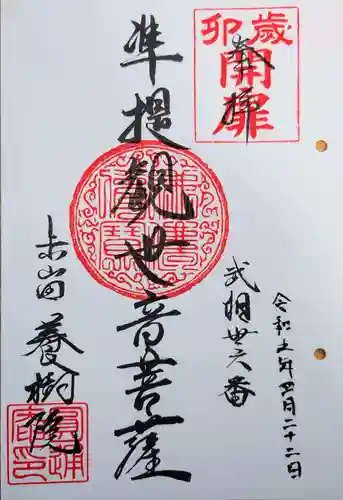 卯歳
開扉
奉拝
令和五年四月二十二日
武相卅六番
準提観世音菩薩
上山田養樹院